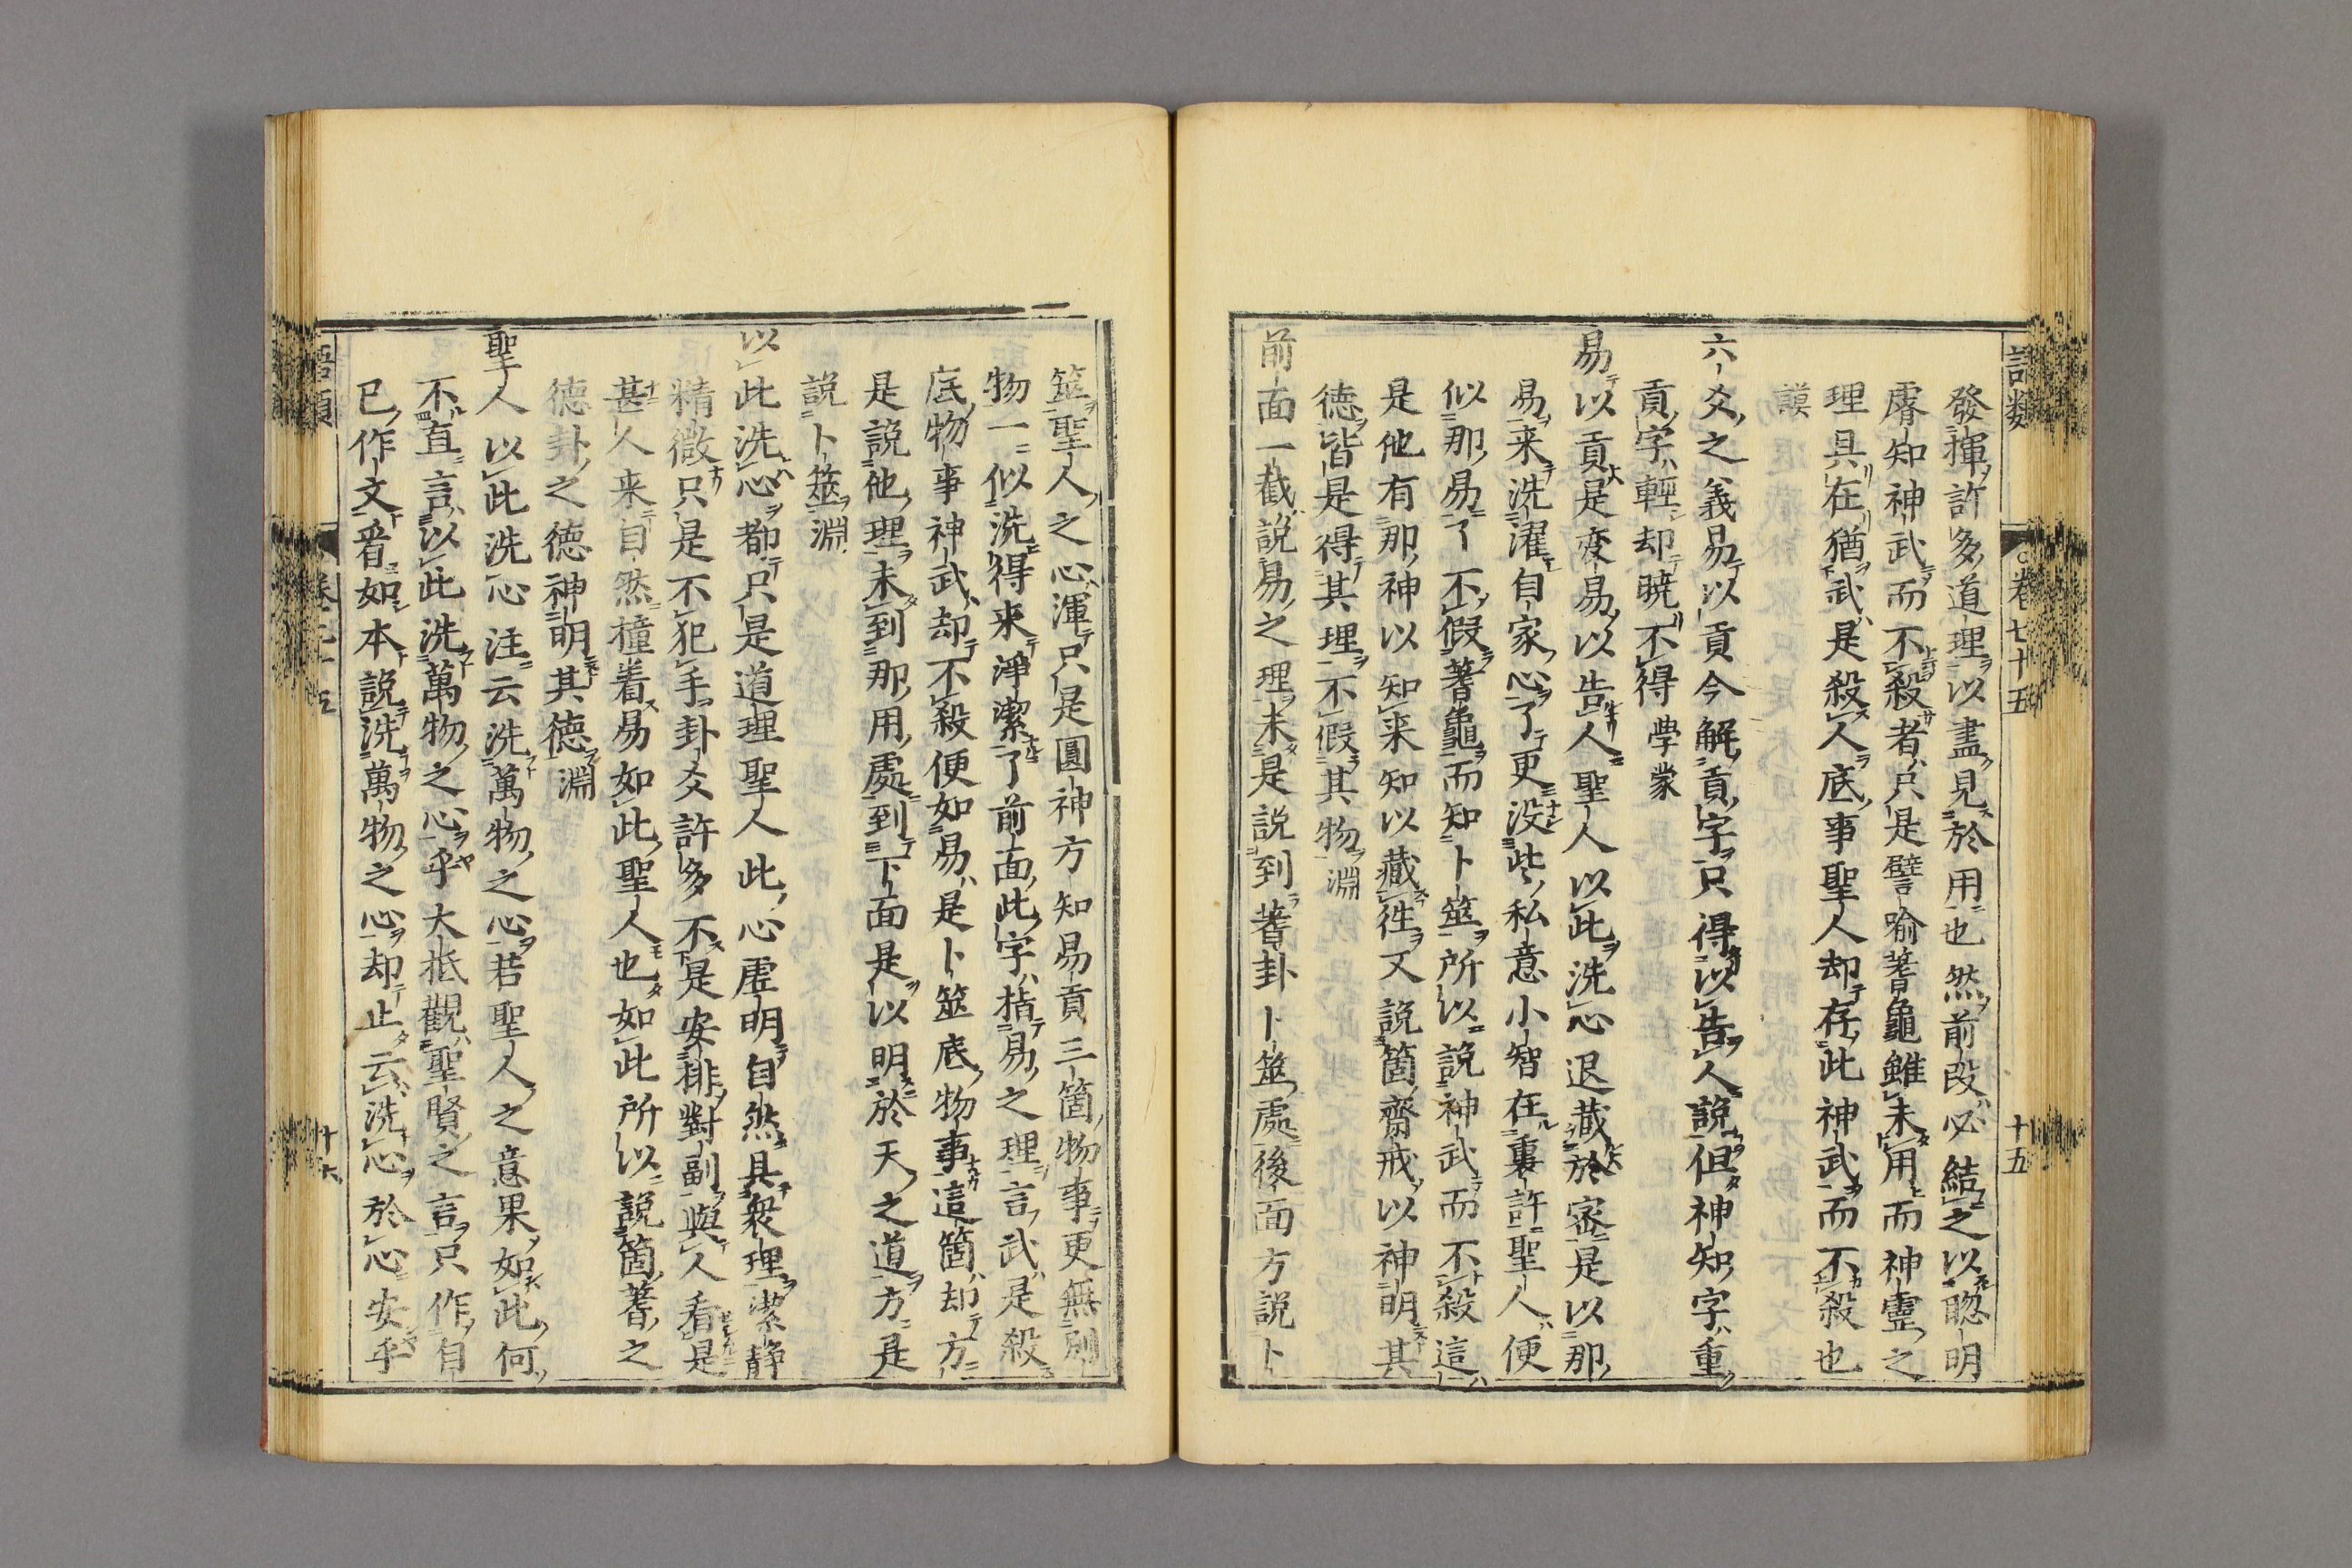 語類
卷七十五
十五
發揮許多道理以盡見於用也然前段必結之以聰明
睿知神武而不殺者只是譬喻蓍龜雖未用而神靈之
理具在猶武是殺人底事聖人却存此神武而不殺也
謨
六爻之義易以貢今解貢字只得以告人說但神知字重
貢字輕却曉不得學蒙
易以貢是変易以告人聖人以此洗心退藏於密是以那
易来洗濯自家心了更没些私意小智在裏許聖人便
似那易了不假蓍龜而知卜筮所以說神武而不殺這
是他有那神以知来知以藏徃又說箇齋戒以神明其
德皆是得其理不假其物淵
前面一截說易之理未是說到蓍卦卜筮處後面方說卜
筮聖人之心渾只是圓神方知易貢三箇物事更無别
物一似洗得来淨潔了前面此字指易之理言武是殺
底物事神武却不殺便如易是卜筮底物事這箇却方
是說他理未到那用處到下面是以明於天之道方是
說卜筮淵
以此洗心都只是道理聖人此心虚明自然具衆理潔静
精微只是不犯手卦爻許多不是安排對副與人看是
甚人来自然撞着易如此聖人也如此所以說箇蓍之
德卦之德神明其德淵
聖人以此洗心注云洗萬物之心若聖人之意果如此何
不直言以此洗萬物之心乎大抵觀聖賢之言只作自
已作文㸔如本說洗萬物之心却止云洗心於心安乎
語類
卷七十五
十六